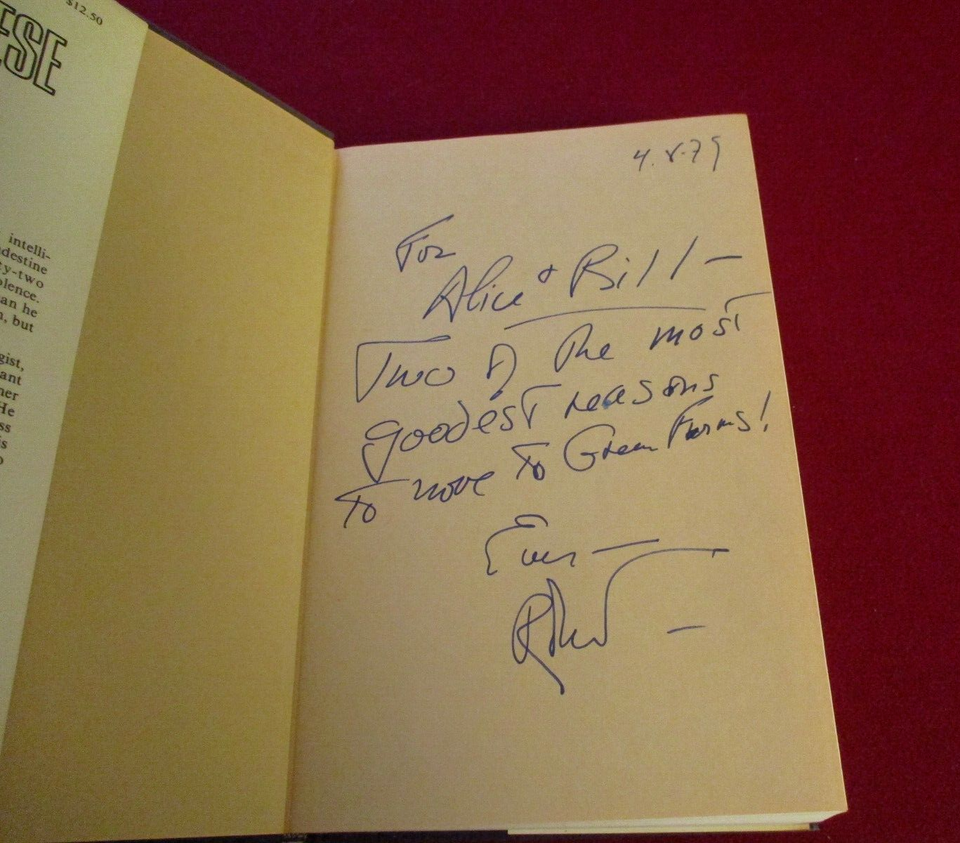 $12.50
ESE
intelli-
destine
y-two
olence.
an he
n, but
gist,
ant
ner
He
ss
is
o
4.8.79
For
Alice & Bill –
Two of the most
goodest reasons
to move to Green Farms!
Ever –
Robert –